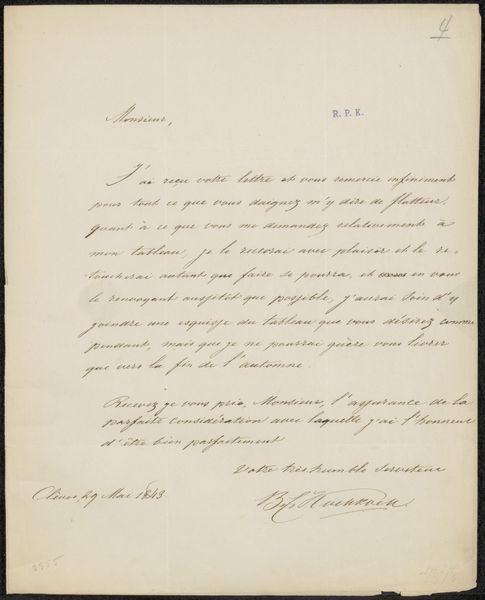 4
Monsieur,
R. P. K.
J'ai reçu votre lettre et vous remercie infiniment
pour tout ce que vous daignez m'y dire de flatteur.
quant à ce que vous me demandez relativement à
mon tableau, je le recevrai avec plaisir et le re-
toucherai autant que faire se pourra, et en vous
le renvoyant aussitôt que possible, j'aurai soin d'y
joindre une esquisse du tableau que vous désirez comme
pendant, mais que je ne pourrai guère vous livrer
que vers la fin de l'automne.
Recevez je vous prie, Monsieur, l'assurance de la
parfaite considération avec laquelle j'ai l'honneur
d'être bien parfaitement
Votre très humble Serviteur
Clèves, 29 Mai 1843.
B. C. Koekkoek